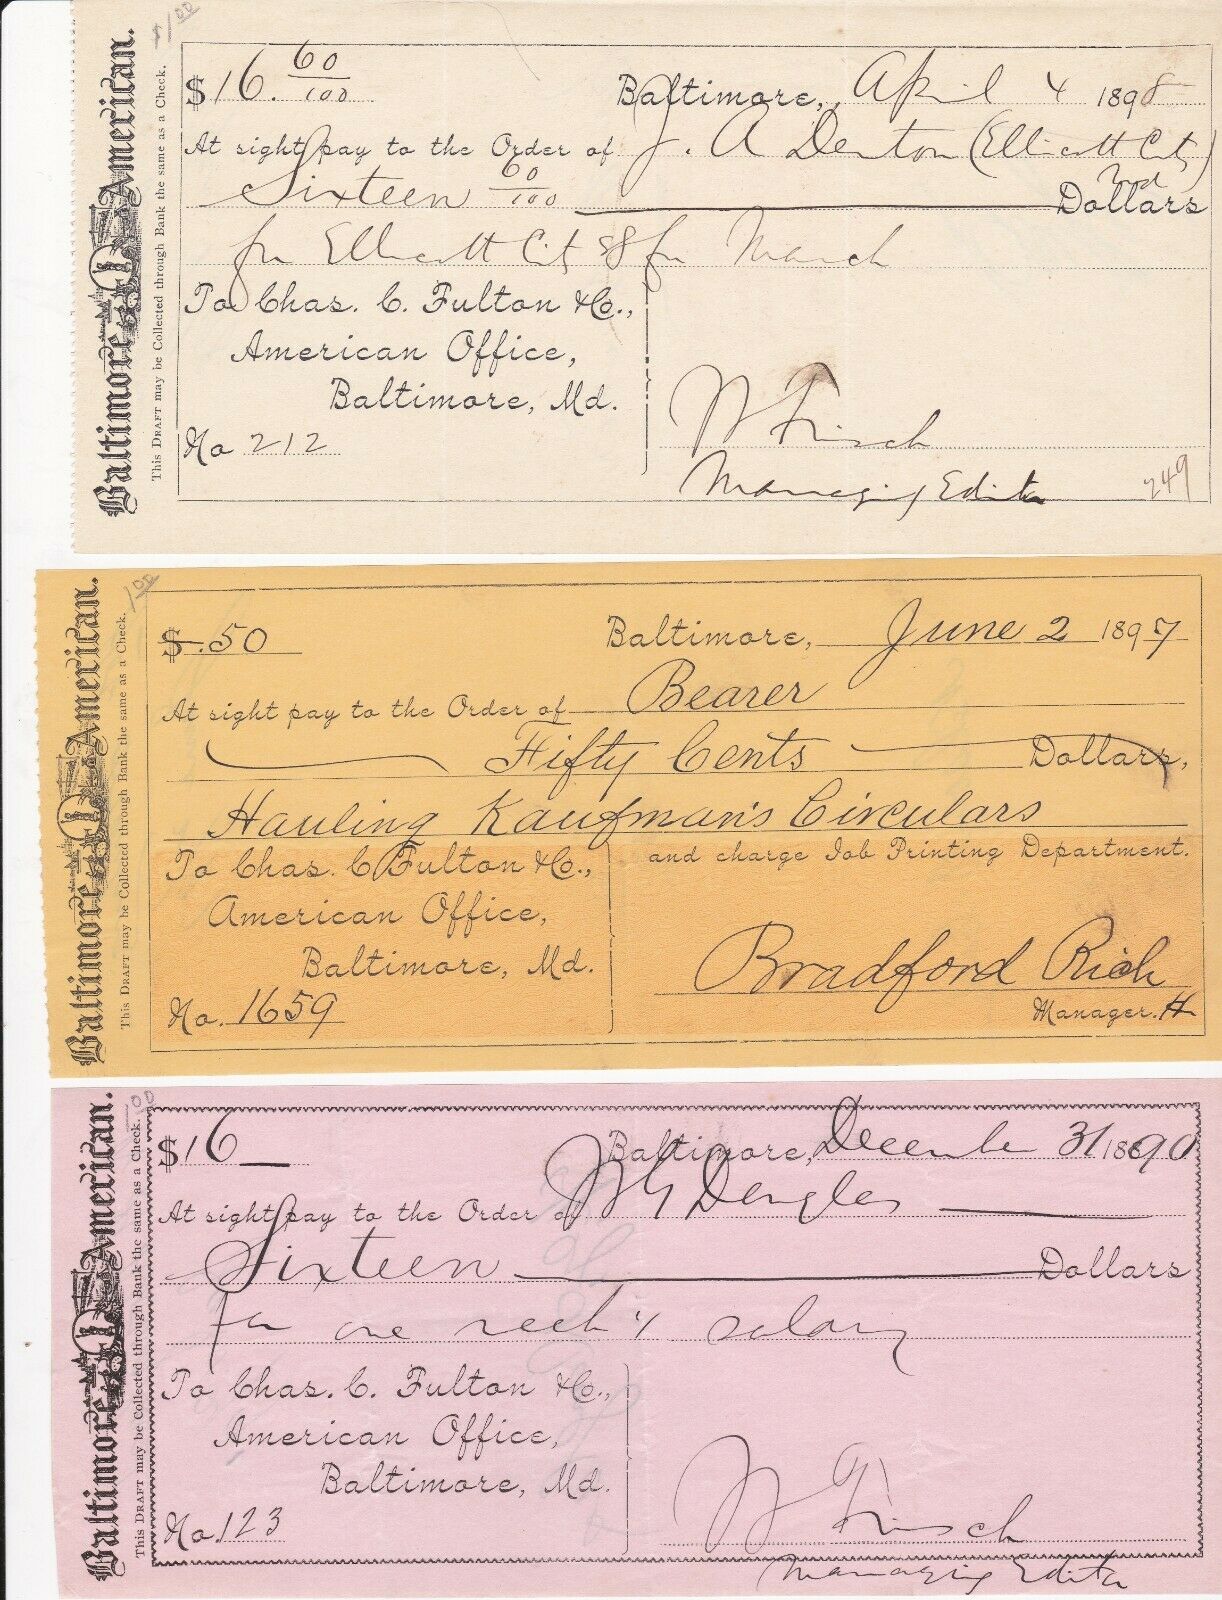 Baltimore American.
This DRAFT may be Collected through Bank the same as a Check.
1.00
$16. 60/100
Baltimore, April 4 1898
At sight pay to the Order of J. A Denton (Ellicott City Md)
Sixteen 60/100 Dollars
for Ellicott City for March
To Chas. C. Fulton & Co.,
American Office,
Baltimore, Md.
No 212
W Frisch
Managing Editor
249
Baltimore American.
This DRAFT may be Collected through Bank the same as a Check.
1.00
$ .50
Baltimore, June 2 1897
At sight pay to the Order of Bearer
Fifty Cents Dollars,
Hauling Kaufman's Circulars
To Chas. C. Fulton & Co.,
and charge Job Printing Department.
American Office,
Baltimore, Md.
Bradford Rich
No. 1659
Manager. H
Baltimore American.
This DRAFT may be Collected through Bank the same as a Check.
1.00
$16
Baltimore, December 31 1890
At sight pay to the Order of
Sixteen Dollars
For one week's salary
To Chas. C. Fulton & Co.,
American Office,
Baltimore, Md.
No. 123
W Frisch
Managing Editor